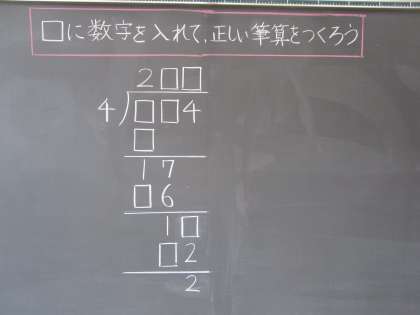 □に数字を入れて、正しい筆算をつくろう
2□□
4)□□4
□
17
□6
1□
□2
2